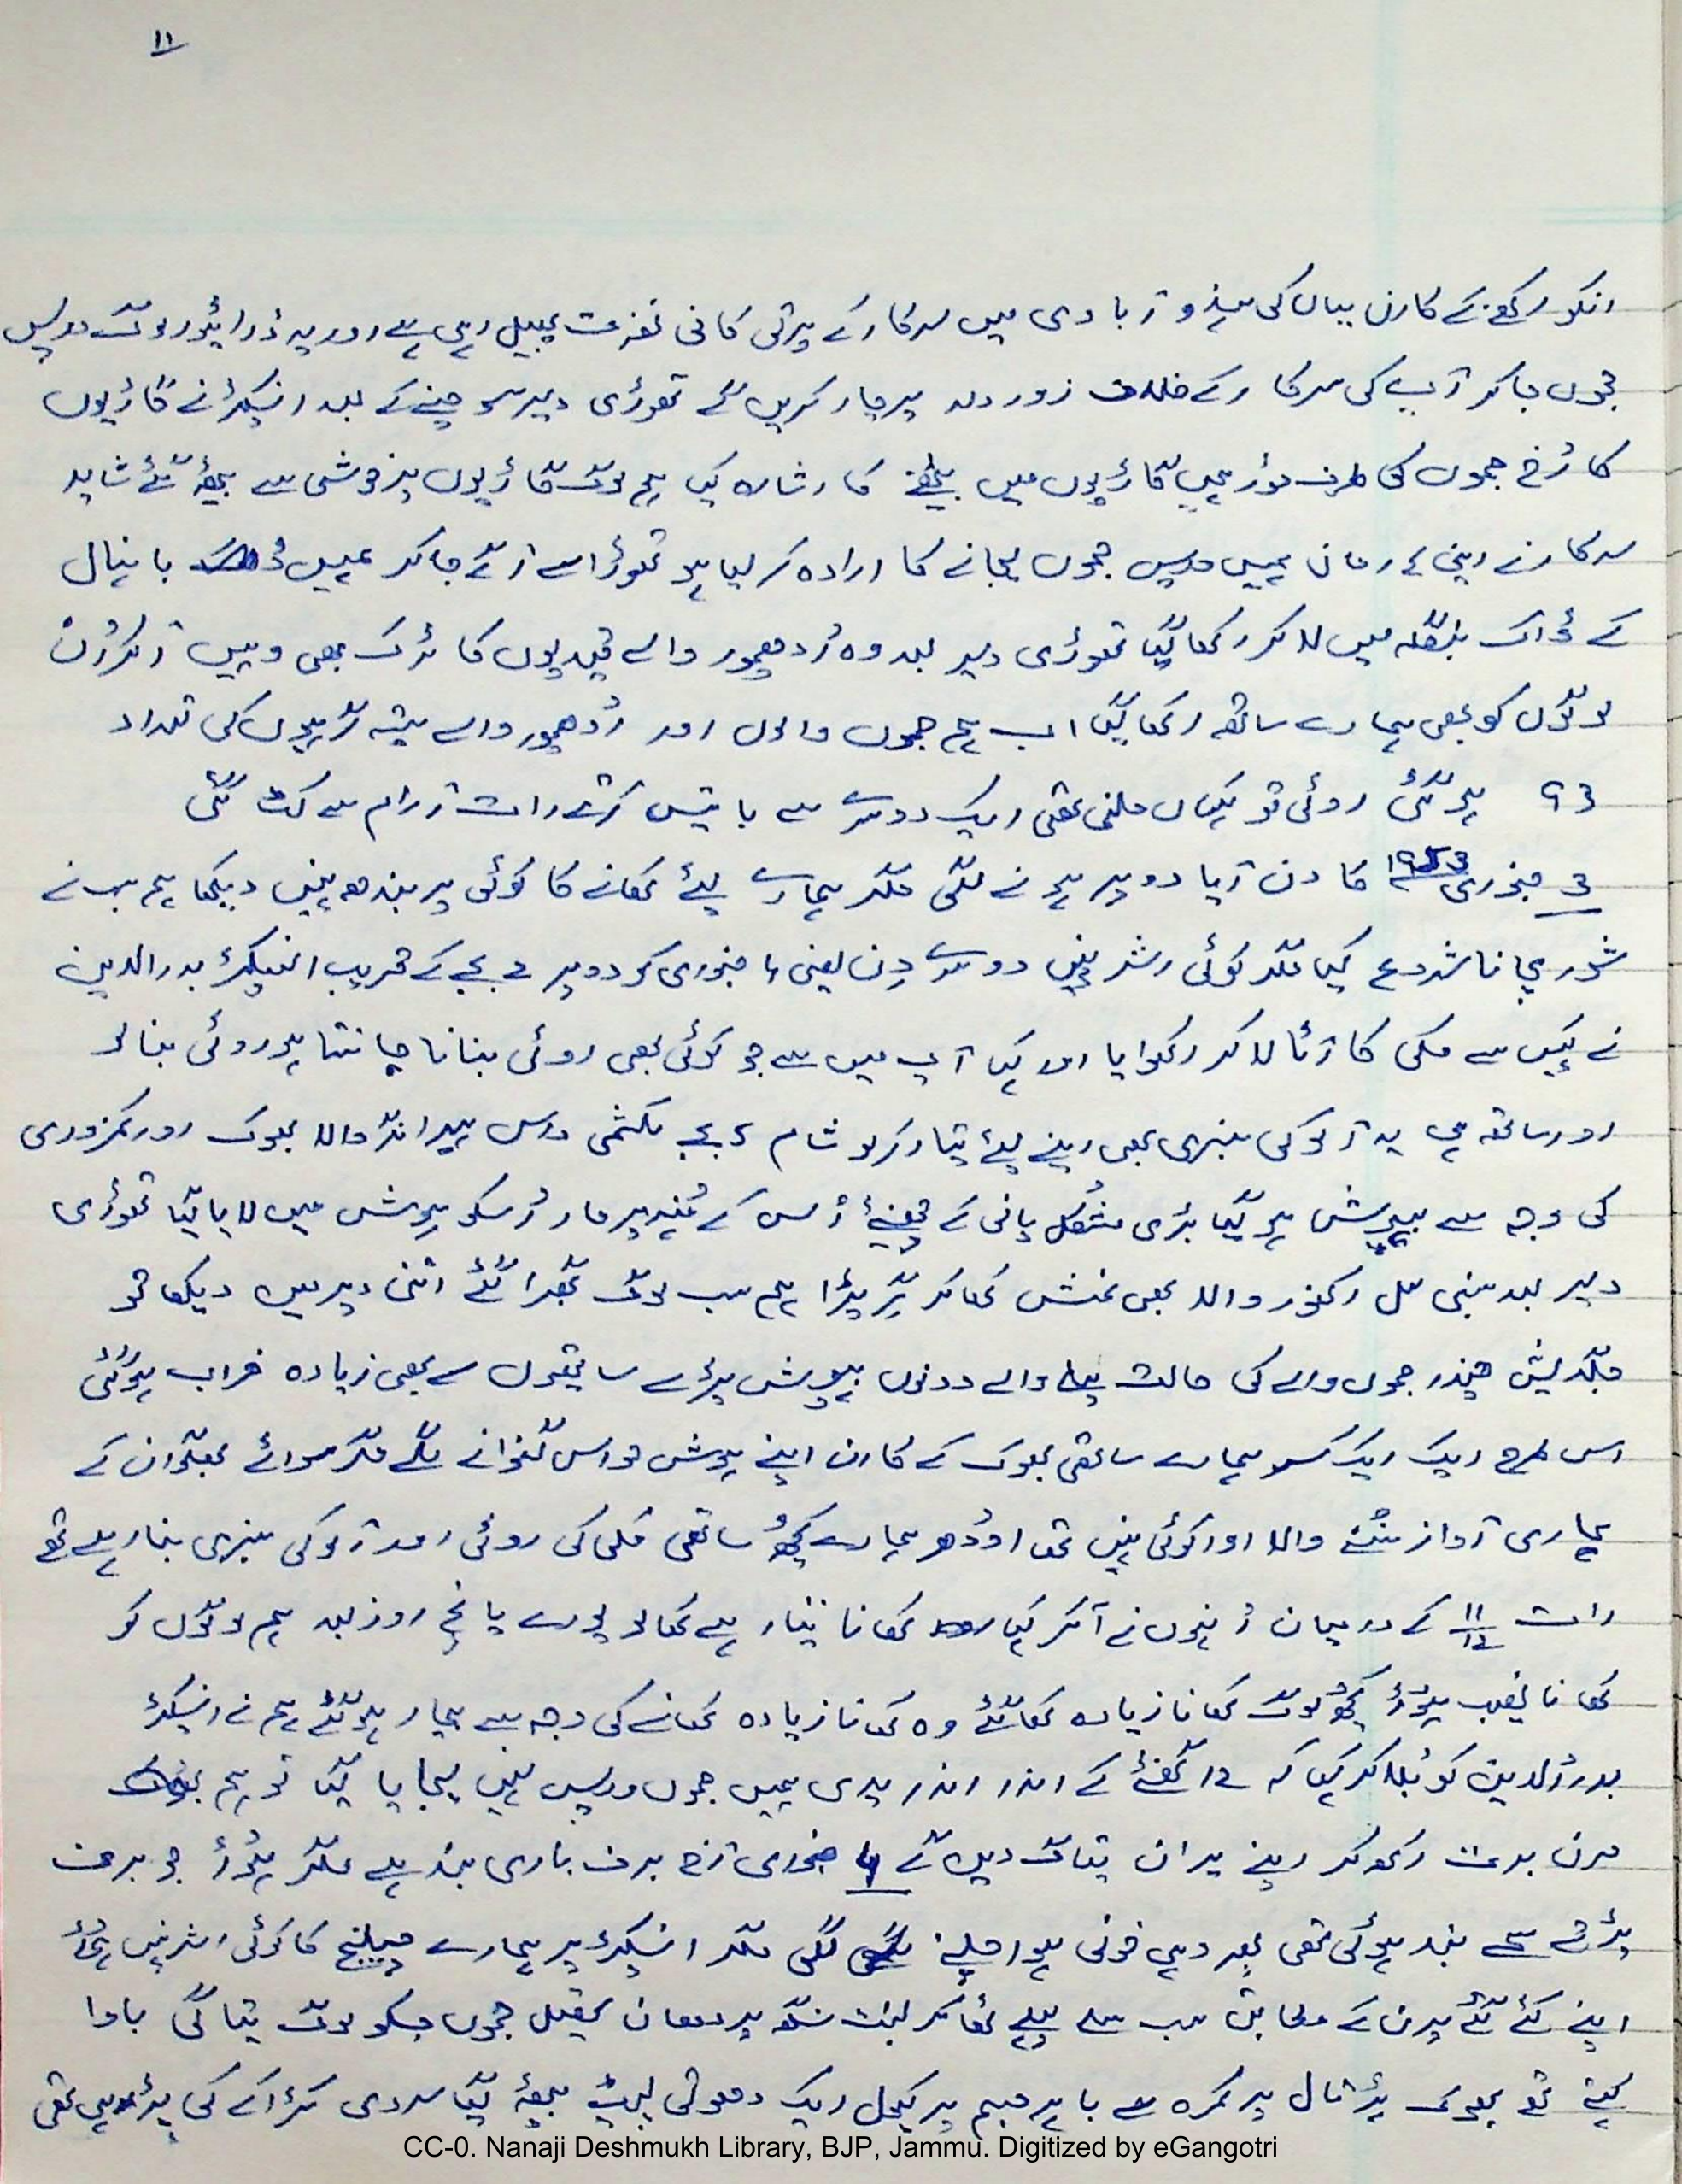 ۱۱
انکو رکھنے کے کارن یہاں کی ہندو آبادی میں سرکار کے پرتی کافی نفرت پھیل رہی ہے اور یہ ڈرائیور لوگ واپس
جموں جا کر آپ کی سرکار کے خلاف زور دار پرچار کریں گے تھوڑی دیر سوچنے کے بعد انسپکٹر نے گاڑیوں
کا رُخ جموں کی طرف موڑ ہمیں گاڑیوں میں بیٹھنے کا اشارہ کیا ہم لوگ گاڑیوں پر خوشی سے بیٹھ گئے شاید
سرکار نے اپنی ہمیں واپس جموں لیجانے کا ارادہ کر لیا ہو تھوڑا سے آگے جا کر ہمیں بانہال
کے ڈاک بنگلہ میں لا کر رکھا گیا تھوڑی دیر بعد وہ اُدھمپور والے قیدیوں کا ٹرک بھی وہیں آ کر اُن
لوگوں کو بھی ہمارے ساتھ رکھا گیا اب ہم جموں والوں اور اُدھمپور والے ستیہ گرہیوں کی تعداد
93 ہو گئی روٹی تو کہاں ملنی تھی ایک دوسرے سے باتیں کرتے رات آرام سے کٹ گئی
3 جنوری 1953 کا دن آیا دوپہر ہونے لگی مگر ہمارے لئے کھانے کا کوئی پربندھ نہیں دیکھا ہم سب نے
شور مچانا شروع کیا مگر کوئی اثر نہیں دوسرے دن یعنی 4 جنوری کو دوپہر 2 بجے کے قریب انسپکٹر بدرالدین
نے کہیں سے مکی کا آٹا لا کر رکھوایا اور کہا آپ میں سے جو کوئی بھی روٹی بنانا جانتا ہو روٹی بنا لو
اور ساتھ ہی یہ آلو کی سبزی بھی اپنے لئے تیار کر لو شام 5 بجے لکشمی داس ہیرا نگر والا بھوک اور کمزوری
کی وجہ سے بیہوش ہو گیا بڑی مشکل پانی کے چھینٹے اُس کے مُنہ پر مار اُسکو ہوش میں لایا گیا تھوڑی
دیر بعد بنسی لال اکھنور والا بھی غش کھا کر گر پڑا ہم سب لوگ گھبرا گئے اتنی دیر میں دیکھا تو
جگدیش چندر جموں والے کی حالت پہلے والے دونوں بیہوش ہوئے ساتھیوں سے بھی زیادہ خراب ہو گئی
اس طرح ایک ایک ہمارے ساتھی بھوک کے کارن اپنے ہوش حواس گنوانے لگے مگر سوائے بھگوان کے
ہماری آواز سُننے والا اور کوئی نہیں تھا اودُھر ہمارے کچھ ساتھی مکی کی روٹی اور آلو کی سبزی بنا رہے تھے
رات 11/12 کے درمیان اُنہوں نے آ کر کہا کھانا تیار ہے کھا لو پورے پانچ روز بعد ہم لوگوں کو
کھانا نصیب ہوا کچھ لوگ کھانا زیادہ کھا گئے وہ کھانا زیادہ کھانے کی وجہ سے بیمار ہو گئے ہم نے انسپکٹر
بدرُالدین کو بُلا کر کہا کہ 12 گھنٹے کے اندر اندر یدی ہمیں جموں واپس نہیں لیجایا گیا تو ہم بھوک
مرن برت رکھ کر اپنے پران تیاگ دیں گے 4 جنوری آج برف باری بند ہے مگر ہوا جو برف
پڑنے سے بند ہوئی تھی پھر وہی خونی ہوا چلنے لگی مگر انسپکٹر پر ہمارے چیلنج کا کوئی اثر نہیں ہوا
اپنے کئے گئے پرن کے مطابق سب سے پہلے ٹھاکر بسنت سنگھ پردھان جموں جسکو لوگ تیاگی بابا
کہتے تھے بھوک ہڑتال پر کمرہ سے باہر جسم پر کیول ایک دھوتی لپیٹ بیٹھ گیا سردی کڑاکے کی پڑ رہی تھی
CC-0. Nanaji Deshmukh Library, BJP, Jammu. Digitized by eGangotri